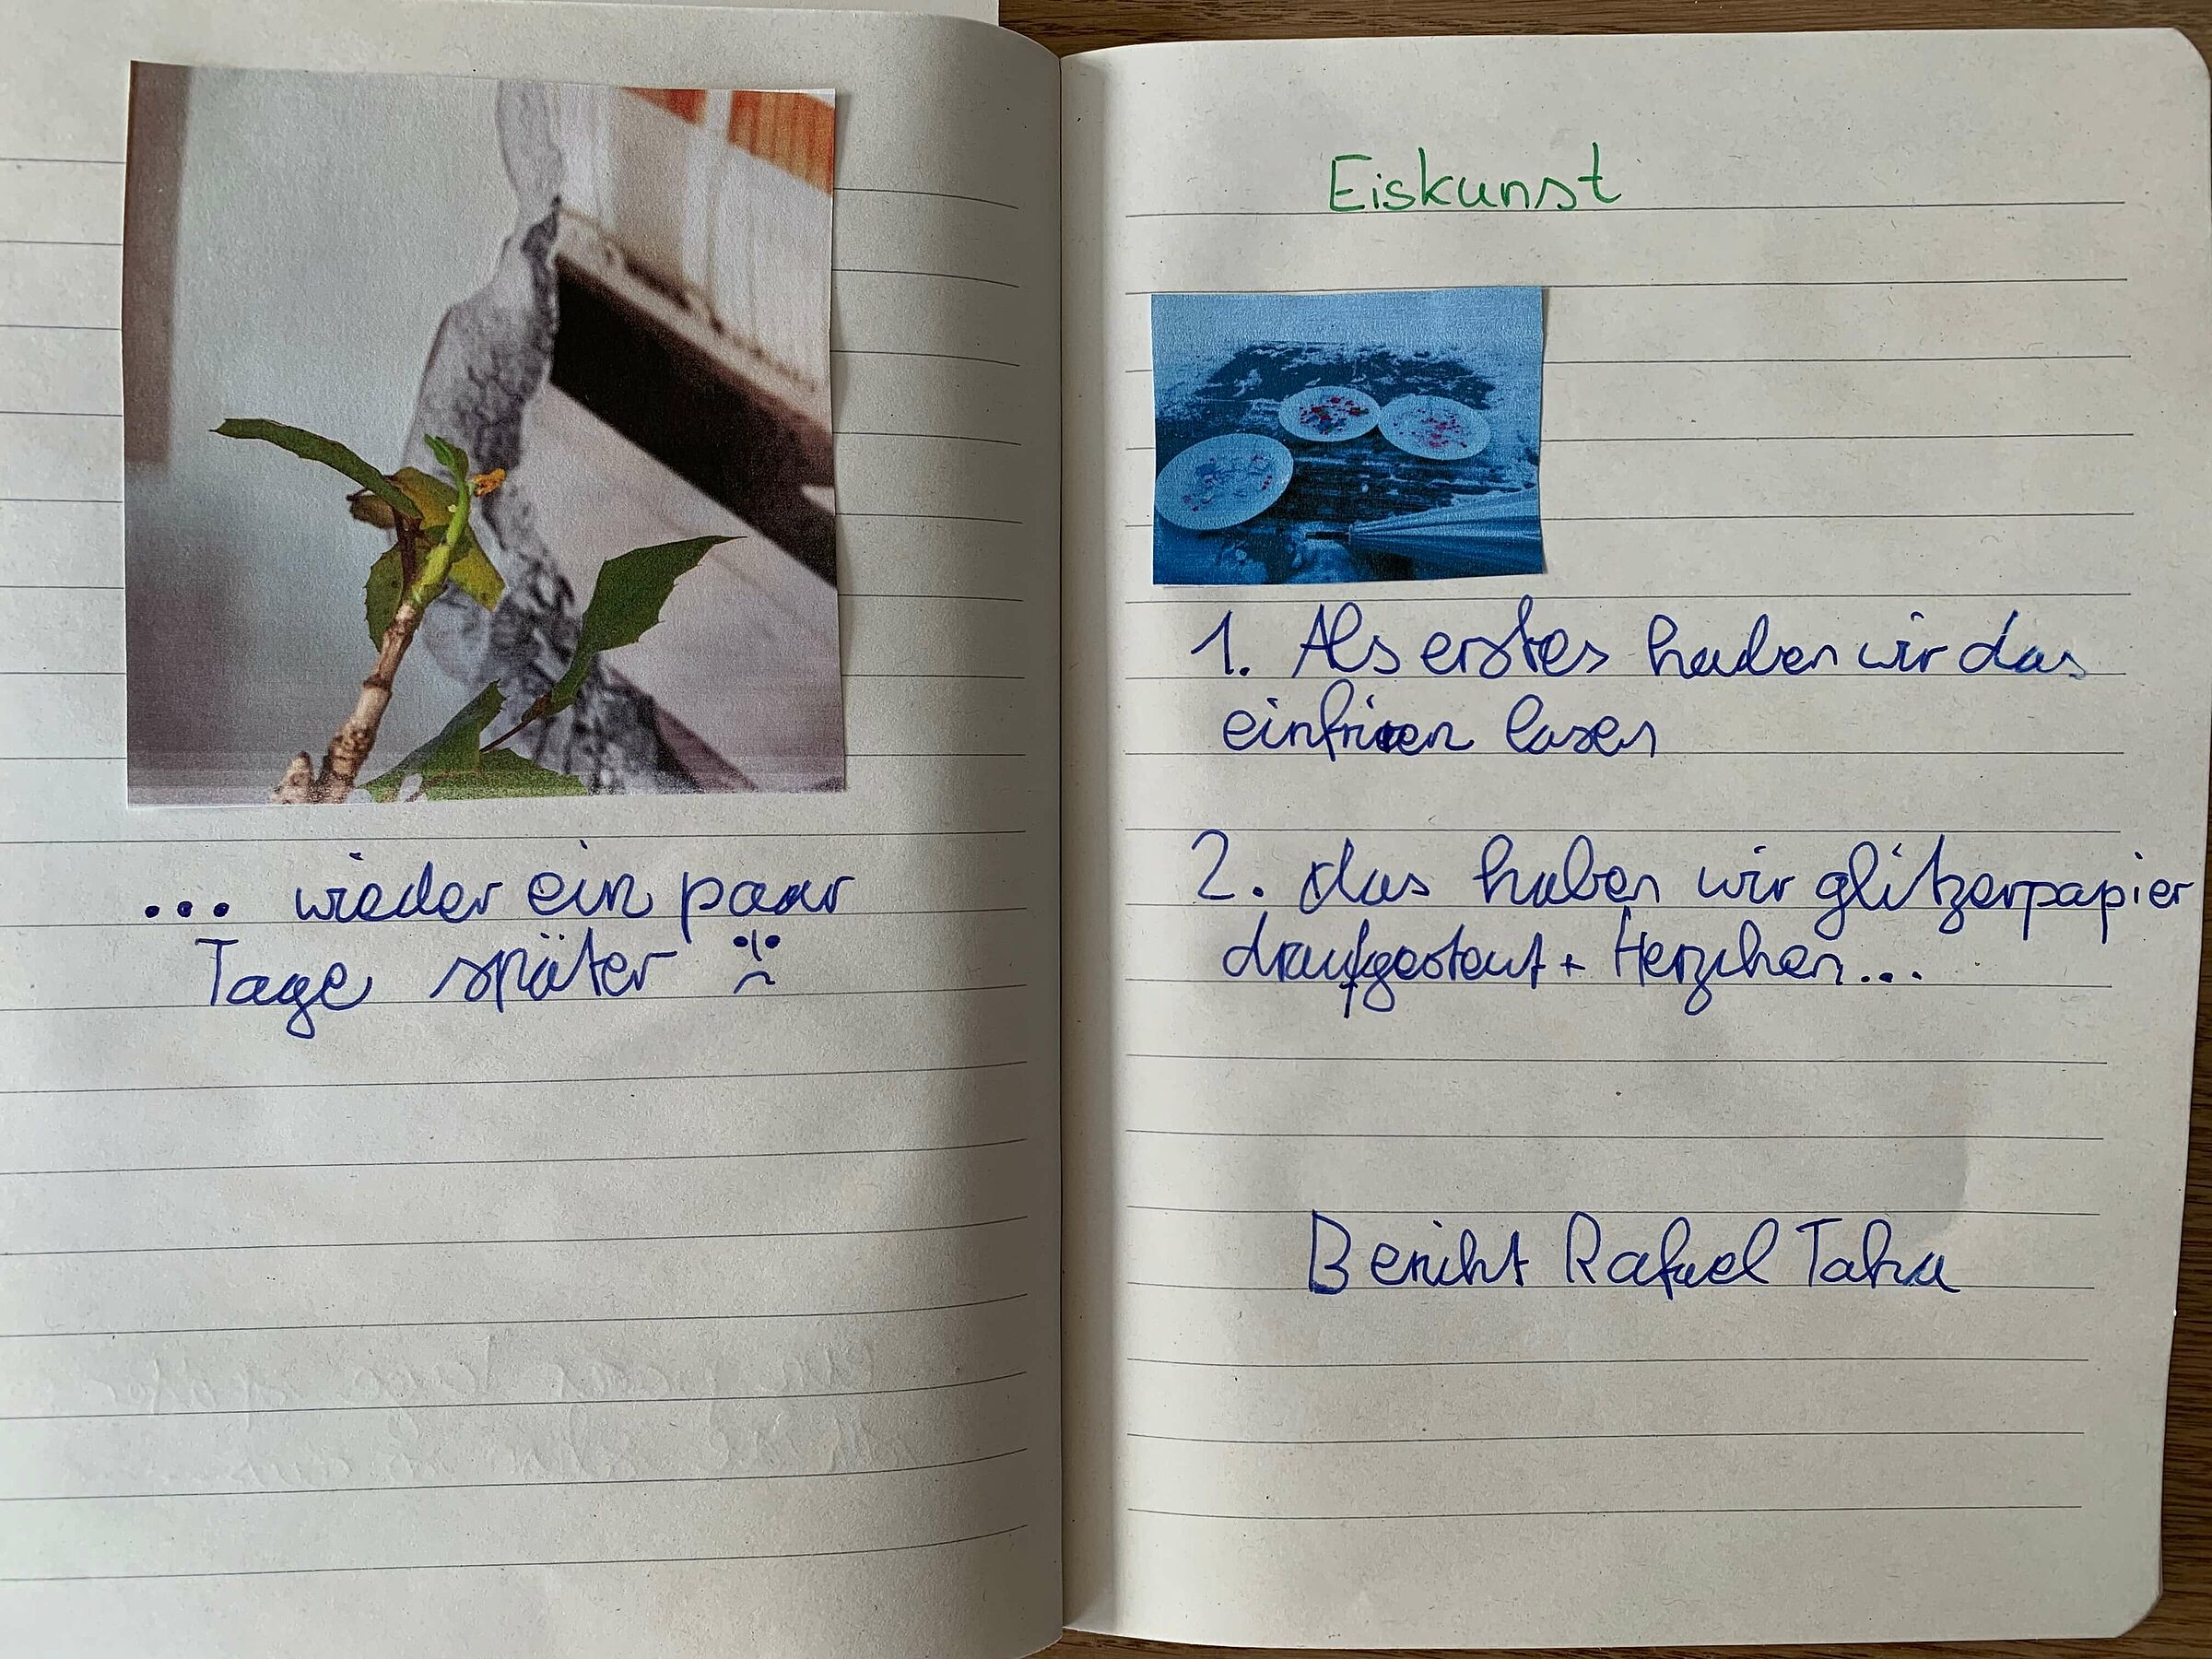 ... wieder ein paar
Tage später
Eiskunst
1. Als erstes haben wir das
einfrieren lasen
2. das haben wir glitzerpapier
draufgesteut + Herzchen...
Bericht Rafael Taha